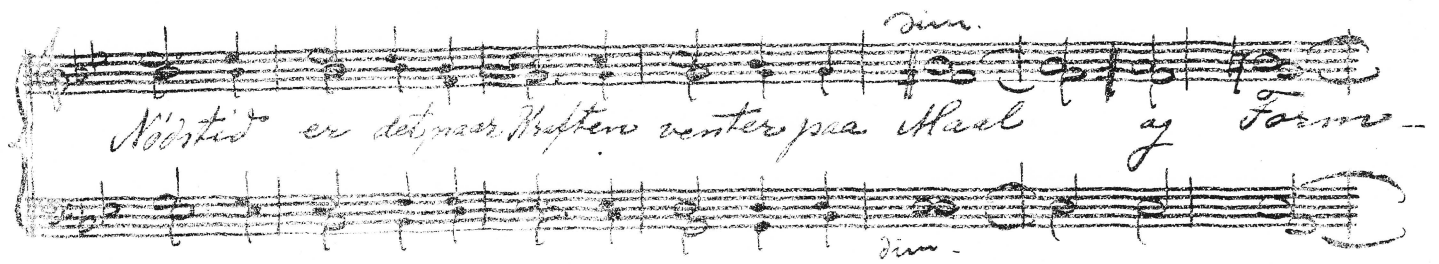 dim.
Nödstid er det naar Kraften venter paa Maal og Form-
dim-